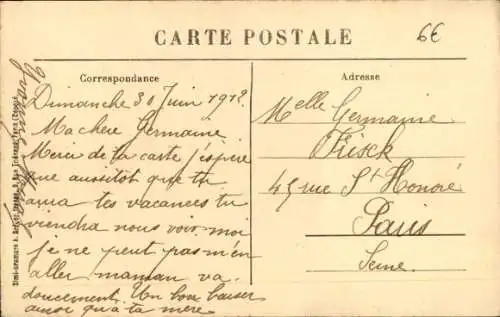 CARTE POSTALE
6€
Correspondance
Adresse
Dimanche 30 Juin 1912.
Ma chère Germaine
Merci de la carte j'espère
que aussitôt que tu
aura tes vacances tu
viendra nous voir moi
je ne peut pas m'en
aller maman va
doucement. Un bon baiser
ainsi qu'a ta mère
Melle Germaine
45 rue St Honoré
Paris
Seine.